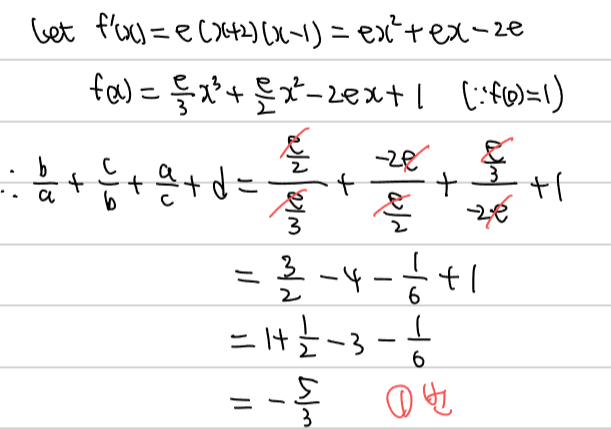 let f'(x)=e(x+2)(x-1)=ex²+ex-2e
f(x)=e/3x³+e/2x²-2ex+1 (∵f(0)=1)
∴ b/a+c/b+a/c+d=(e/2)/(e/3)+(-2e)/(e/2)+(e/3)/(-2e)+1
=3/2-4-1/6+1
=1+1/2-3-1/6
=-5/3 ①번